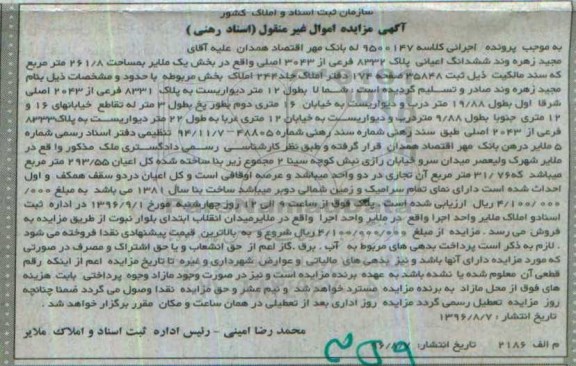 سازمان ثبت اسناد و املاک کشور
آگهی مزایده اموال غیر منقول (اسناد رهنی)
به موجب پرونده اجرائی کلاسه ۹۵۰۰۱۴۷ له بانک مهر اقتصاد همدان علیه آقای
مجید زهره وند ششدانگ اعیانی پلاک ۸۳۳۲ فرعی از ۳۰۴۳ اصلی واقع در بخش یک ملایر بمساحت ۲۶۱/۸ متر مربع
که سند مالکیت ذیل ثبت ۳۵۸۴۸ صفحه ۱۷۴ دفتر املاک جلد ۲۴۴ املاک بخش مربوطه با حدود و مشخصات ذیل بنام
مجید زهره وند صادر و تسلیم گردیده است بطول ۱۲ متر دیواریست به پلاک ۸۳۳۱ فرعی از ۲۰۴۳ اصلی
شرقا اول بطول ۱۹/۸۸ متر درب و دیواریست به خیابان ۱۶ متری دوم بطور پخ بطول ۳ متر له تقاطع خیابانهای ۱۶ و
۱۲ متری جنوبا بطول ۹/۸۸ متر درب و دیواریست به خیابان ۱۲ متری غربا به طول ۲۲ متر دیواریست به پلاک ۸۳۳۳
فرعی از ۲۰۴۳ اصلی طبق سند رهنی شماره سند رهنی شماره ۴۸۸۰۵ - ۹۴/۱۱/۷ تنظیمی دفتر اسناد رسمی شماره
۵ ملایر درهن بانک مهر اقتصاد همدان قرار گرفته و طبق نظر کارشناسی رسمی دادگستری ملک مذکور واقع در
ملایر شهرک ولیعصر میدان سرو خیابان رازی نبش کوچه سینا ۲ مجموع زیر بنا ساخته شده کل اعیان ۲۹۳/۵۵ متر مربع
میباشد که ۳۱/۷۶ متر مربع آن تجاری در دو واحد میباشد و عرصه اوقافی است و کل اعیان در دو سقف همکف و اول
احداث شده است دارای نمای تمام سرامیک و زمین شمالی دوبر میباشد ساخت بنا سال ۱۳۸۱ می باشد به مبلغ ۰۰۰/
۴/۱۰۰/۰۰۰ ریال ارزیابی شده است پلاک فوق از ساعت ۹ الی ۱۲ روز چهارشنبه مورخ ۱۳۹۶/۹/۱ در اداره ثبت
اسناد و املاک ملایر واحد اجرا واقع در ملایر واحد اجرا واقع در ملایر میدان انقلاب ابتدای بلوار نبوت از طریق مزایده به
فروش می رسد. مزایده از مبلغ ۴/۱۰۰/۰۰۰/۰۰۰ ریال شروع و به بالاترین قیمت پیشنهادی نقدا فروخته می شود
. لازم به ذکر است پرداخت بدهی های مربوط به آب . برق .گاز اعم از حق انشعاب و یا حق اشتراک و مصرف در صورتی
که مورد مزایده دارای آنها باشد و نیز بدهی های مالیاتی و عوارض شهرداری و غیره تا تاریخ مزایده اعم از اینکه رقم
قطعی آن معلوم شده یا نشده باشد به عهده برنده مزایده است و نیز در صورت وجود مازاد وجوه پرداختی بابت هزینه
های فوق از محل مازاد به برنده مزایده مسترد خواهد شد و نیم عشر و حق مزایده نقدا وصول می گردد ضمنا چنانچه
روز مزایده تعطیل رسمی گردد مزایده روز اداری بعد از تعطیلی در همان ساعت و مکان مقرر برگزار خواهد شد .
تاریخ انتشار : ۱۳۹۶/۸/۷
محمد رضا امینی - رئیس اداره ثبت اسناد و املاک ملایر
م الف ۲۱۸۶ تاریخ انتشار: